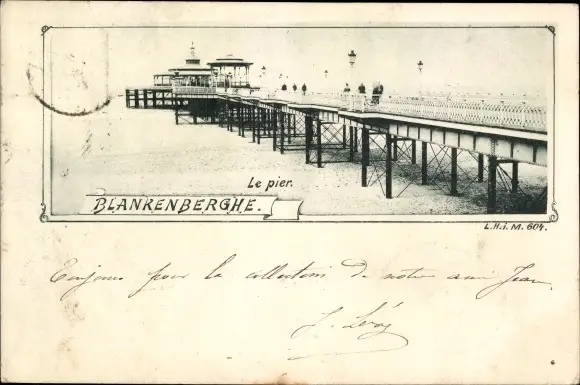 Le pier.
BLANKENBERGHE.
L.H.i.M. 604.
Toujours pour la collection de notre ami Jean